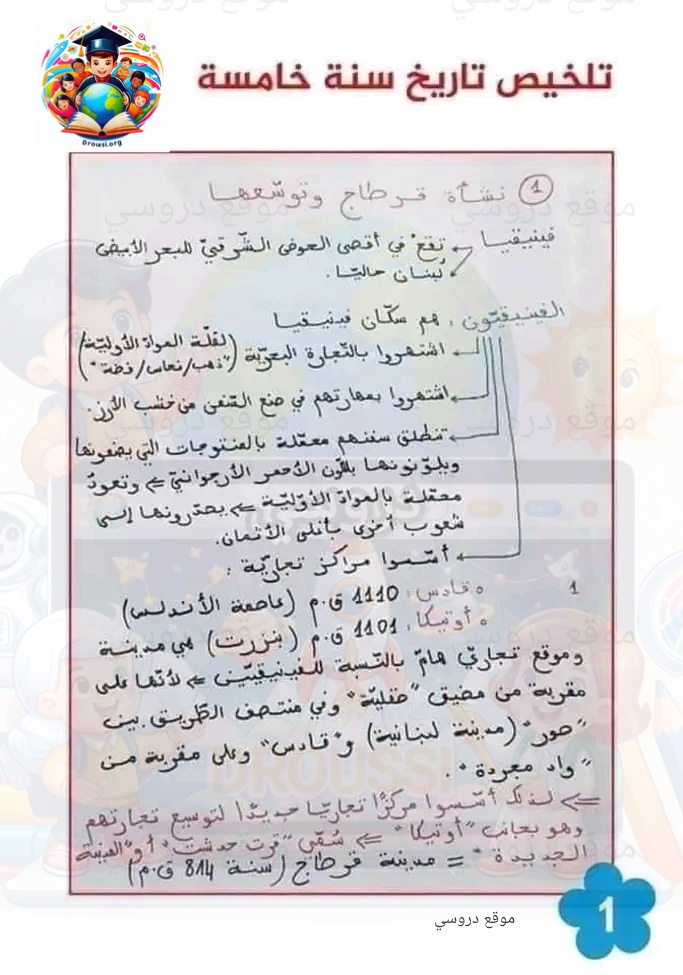 Drousi.org
تلخيص تاريخ سنة خامسة
1 نشأة قرطاج وتوسّعها
فينيقيا ← تقع في أقصى الحوض الشّرقيّ للبحر الأبيض
← لبنان حاليّا.
الفينيقيّون: هم سكّان فينيقيا
← اشتهروا بالتّجارة البحريّة (لقلّة الموادّ الأوليّة/
"ذهب/نحاس/فضّة")
← اشتهروا بمهارتهم في صنع السّفن من خشب الأرز.
← تنطلق سفنهم محمّلة بالمنتوجات التي يصنعونها
ويلوّنونها باللّون الأحمر الأرجوانيّ ⇐ وتعود
محمّلة بالموادّ الأوّليّة ⇐ يصدّرونها إلى
شعوب أخرى بأغلى الأثمان.
← أسّسوا مراكز تجاريّة:
1 ٥ قادس: 1110 ق.م (عاصمة الأندلس)
٥ أوتيكا: 1101 ق.م (بنزرت) هي مدينة
وموقع تجاريّ هامّ بالنّسبة للفينيقيّين ⇐ لأنّها على
مقربة من مضيق "صقليّة" وفي منتصف الطّريق بين
"صور" (مدينة لبنانية) و"قادس" وعلى مقربة من
"واد مجردة".
⇐ لذلك أسّسوا مركزًا تجاريّا جديدًا لتوسيع تجارتهم
وهو بجانب "أوتيكا" ⇐ سُمّي "قرت حدشت" أو "المدينة
الجديدة" = مدينة قرطاج (سنة 814 ق.م)
موقع دروسي
1
موقع دروسي
DROUSSI